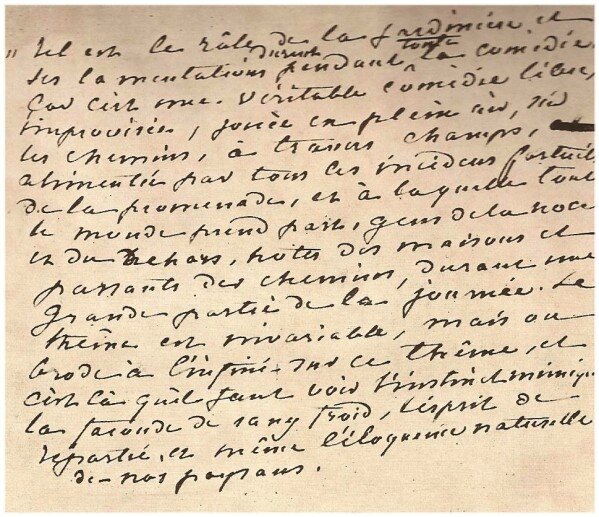 " Tel est le rôle de la jardinière et
ses lamentations durant pendant toute la comédie.
Car c'est une véritable comédie libre,
improvisée, jouée en plein air, sur
les chemins, à travers champs,
alimentée par tous les incidens fortuits
de la promenade, et à laquelle tout
le monde prend part, gens de la noce
et du dehors, hotes des maisons et
passants des chemins, durant une
grande partie de la journée. Le
thême est invariable, mais on
brode à l'infini sur ce thême, et
c'est là qu'il faut voir l'instinct mimique
la faconde de sang froid, l'esprit de
repartie, et même l'éloquence naturelle
de nos paysans.